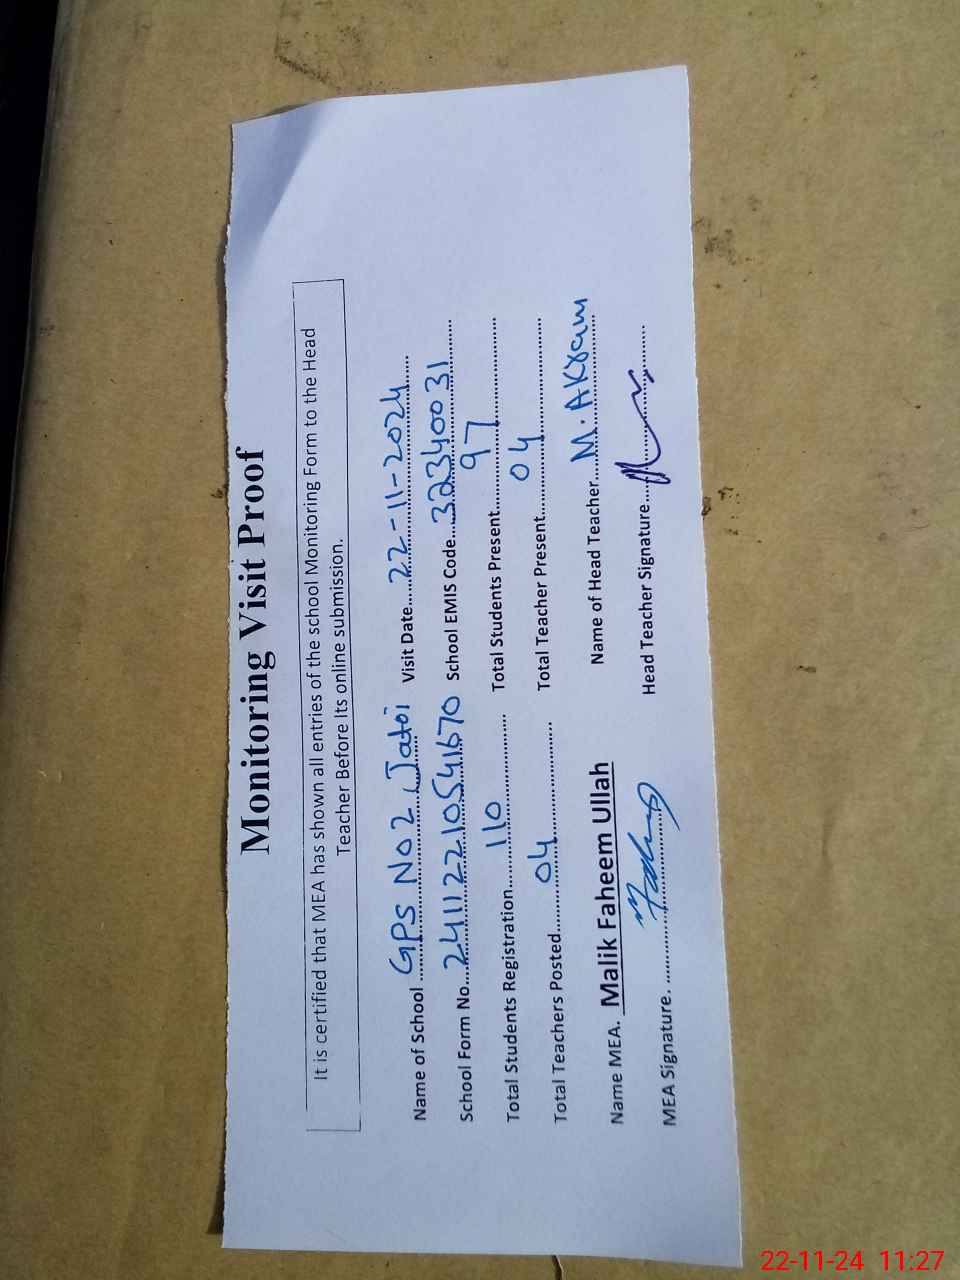 Monitoring Visit Proof
It is certified that MEA has shown all entries of the school Monitoring Form to the Head
Teacher Before Its online submission.
Name of School ....GPS No 2 Jatoi.... Visit Date....22-11-2024....
School Form No....24112210541670 School EMIS Code....32340031....
Total Students Registration....110.... Total Students Present....97....
Total Teachers Posted....04.... Total Teacher Present....04....
Name MEA. Malik Faheem Ullah Name of Head Teacher....M. AKram....
MEA Signature. .... Head Teacher Signature....
22-11-24 11:27